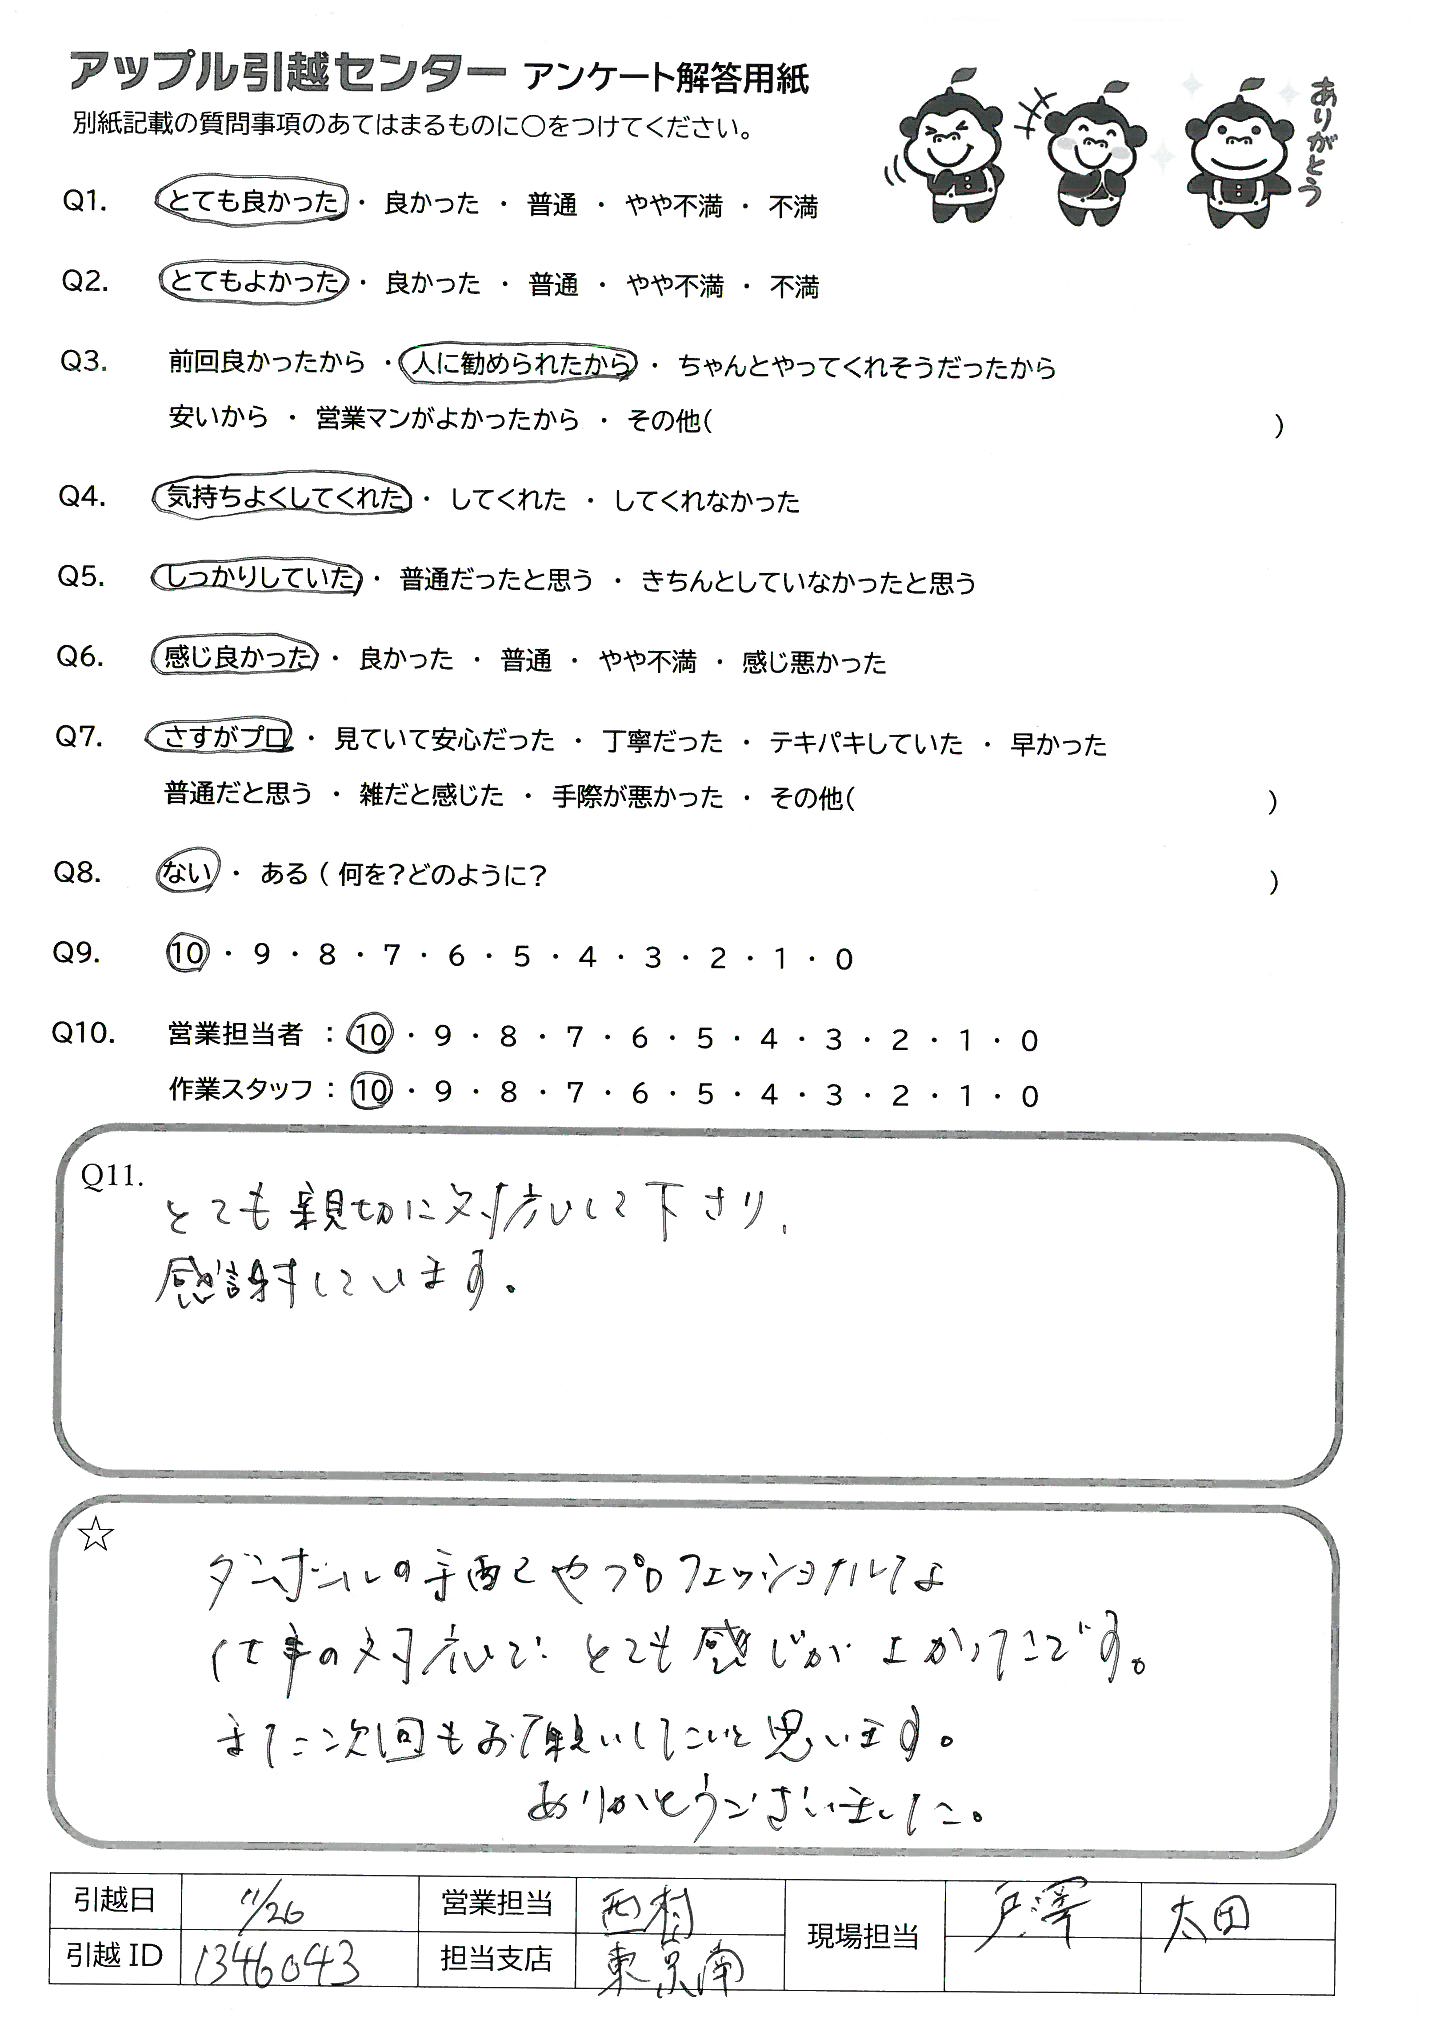 アップル引越センター アンケート解答用紙
別紙記載の質問事項のあてはまるものに○をつけてください。
ありがとう
Q1. とても良かった ・ 良かった ・ 普通 ・ やや不満 ・ 不満
Q2. とてもよかった ・ 良かった ・ 普通 ・ やや不満 ・ 不満
Q3. 前回良かったから ・ 人に勧められたから ・ ちゃんとやってくれそうだったから
安いから ・ 営業マンがよかったから ・ その他( )
Q4. 気持ちよくしてくれた ・ してくれた ・ してくれなかった
Q5. しっかりしていた ・ 普通だったと思う ・ きちんとしていなかったと思う
Q6. 感じ良かった ・ 良かった ・ 普通 ・ やや不満 ・ 感じ悪かった
Q7. さすがプロ ・ 見ていて安心だった ・ 丁寧だった ・ テキパキしていた ・ 早かった
普通だと思う ・ 雑だと感じた ・ 手際が悪かった ・ その他( )
Q8. ない ・ ある ( 何を?どのように? )
Q9. 10 ・ 9 ・ 8 ・ 7 ・ 6 ・ 5 ・ 4 ・ 3 ・ 2 ・ 1 ・ 0
Q10. 営業担当者 : 10 ・ 9 ・ 8 ・ 7 ・ 6 ・ 5 ・ 4 ・ 3 ・ 2 ・ 1 ・ 0
作業スタッフ : 10 ・ 9 ・ 8 ・ 7 ・ 6 ・ 5 ・ 4 ・ 3 ・ 2 ・ 1 ・ 0
Q11. とても親切に対応して下さり、
感謝しています。
☆ ダンボールの手配やプロフェッショナルな
仕事の対応で とても感じがよかったです。
また次回もお願いしたいと思います。
ありがとうございました。
引越日 11/26 営業担当 西村 現場担当 戸澤 太田
引越ID 1346043 担当支店 東京南